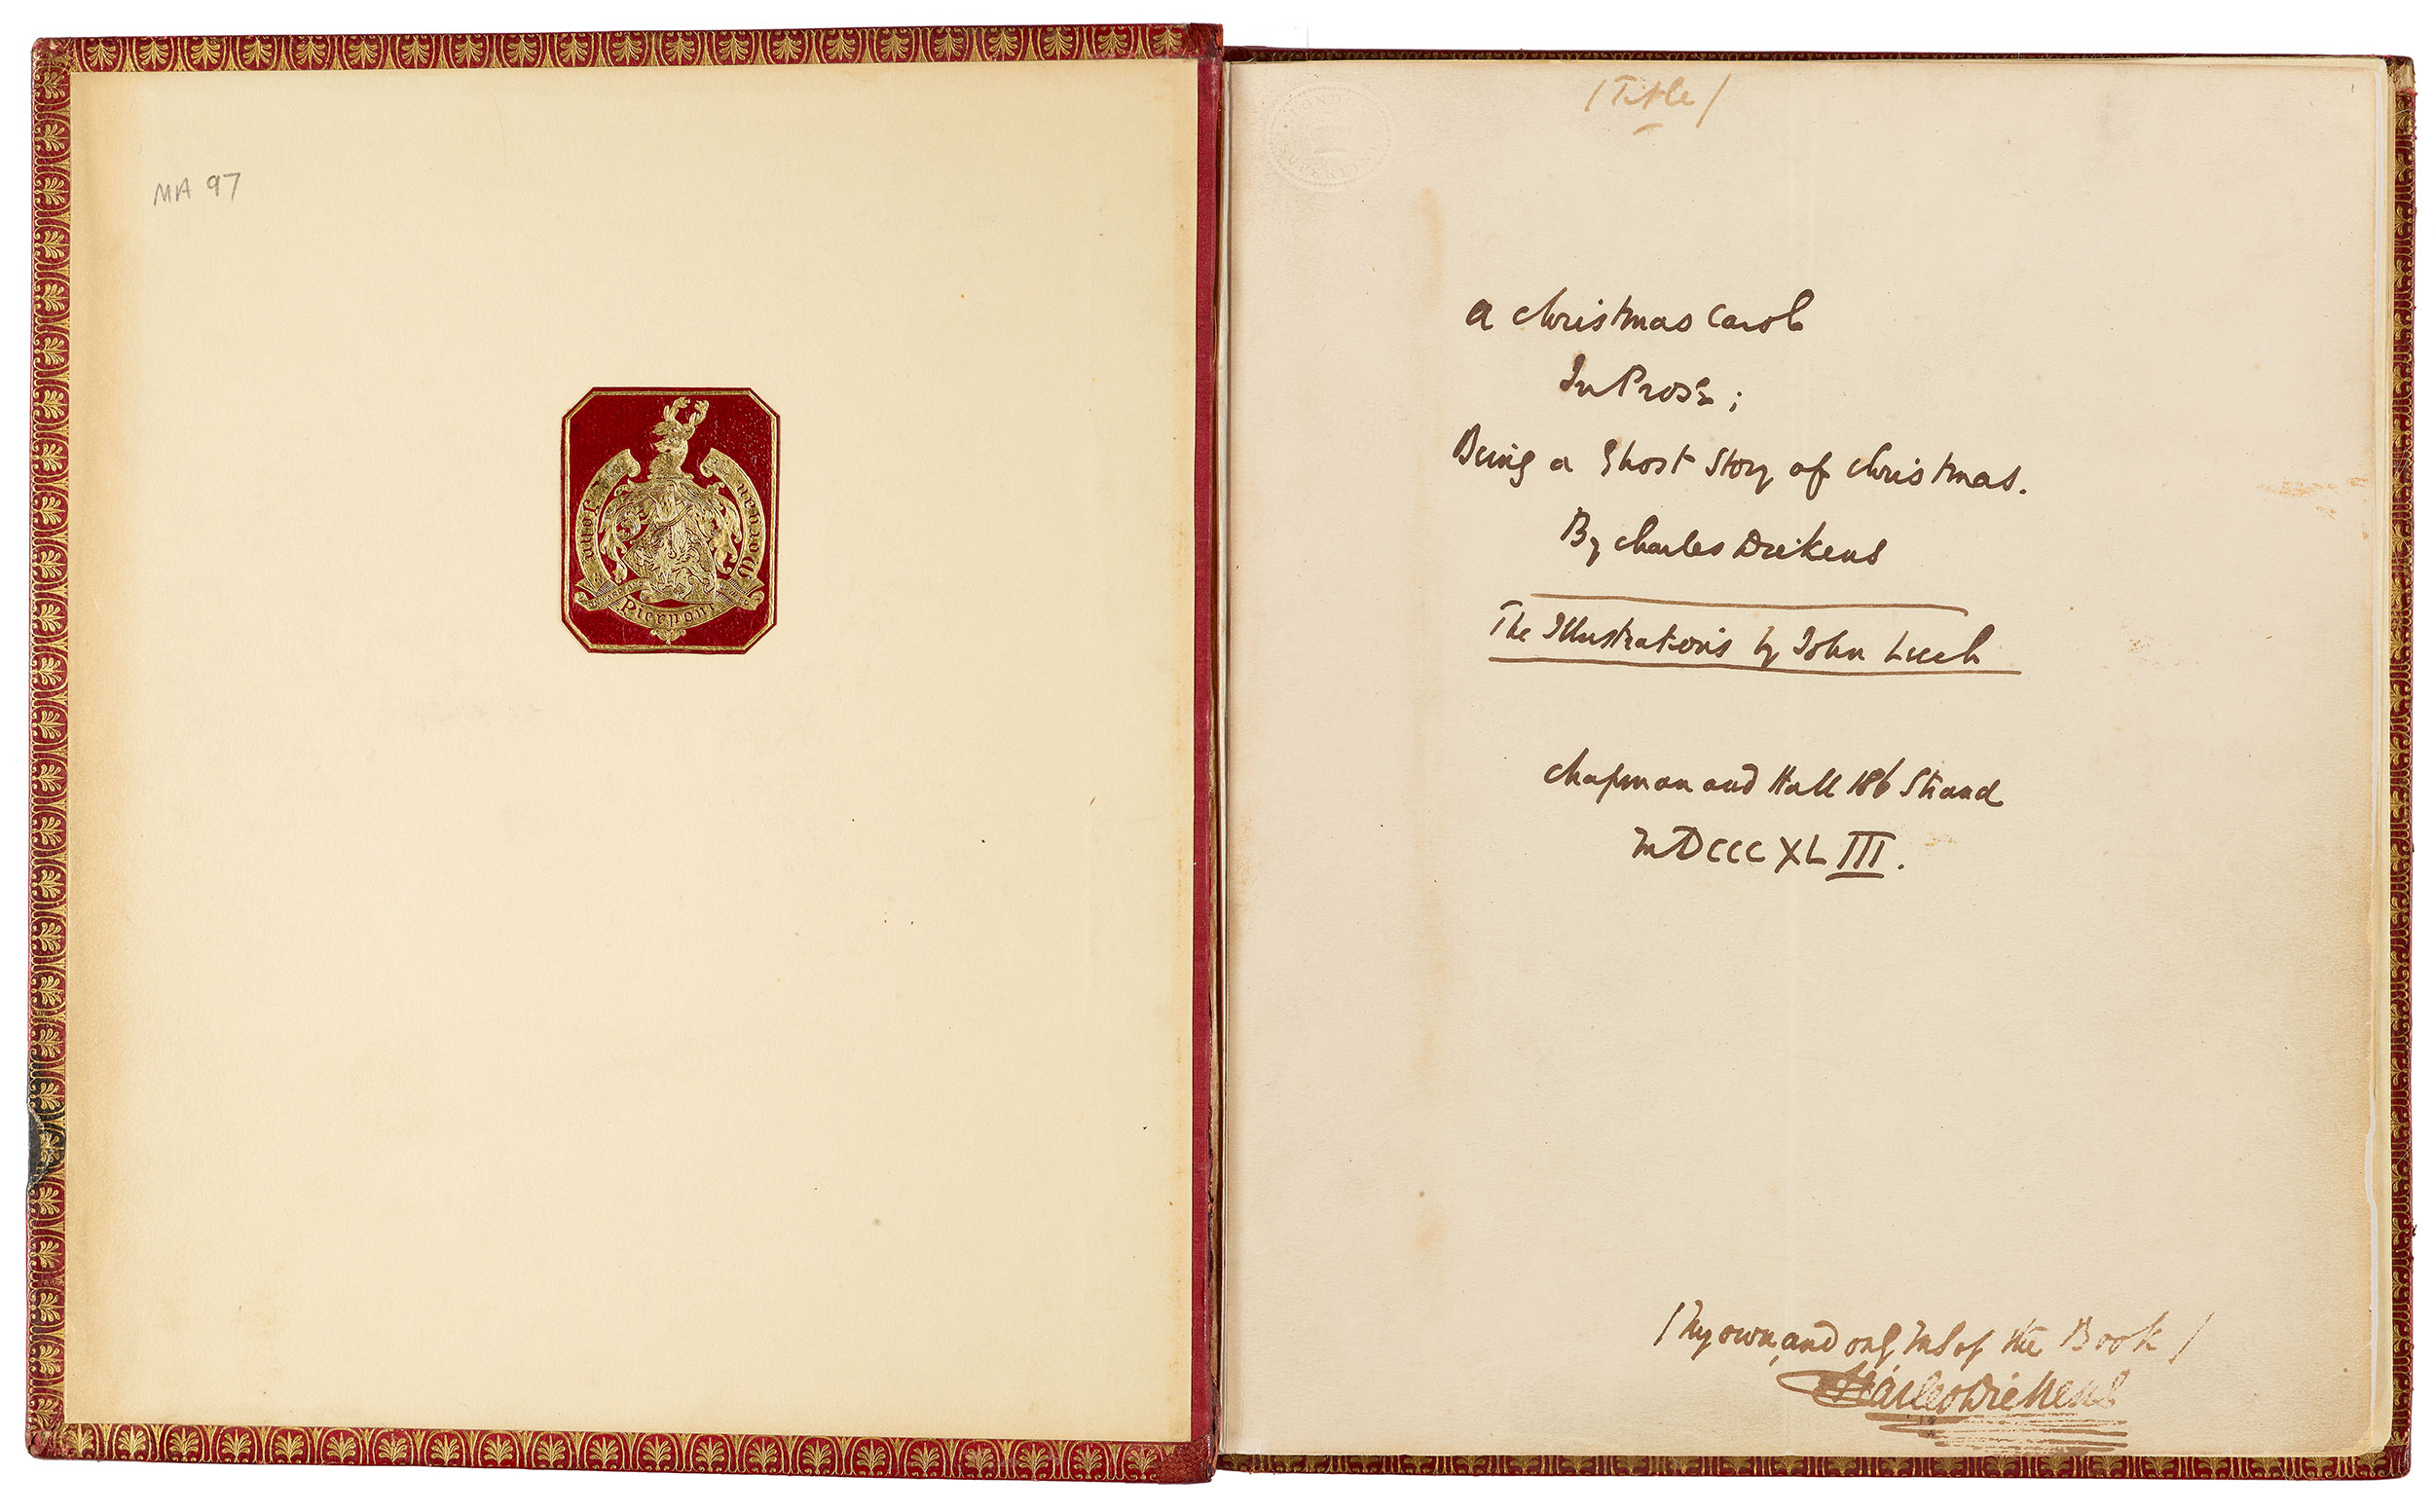 MA 97
John Pierpont Morgan
/Title/
A Christmas Carol
In Prose;
Being a Ghost Story of Christmas.
By Charles Dickens
The Illustrations by John Leech
Chapman and Hall 186 Strand
MDCCCXLIII.
/My own, and only MS of the Book/
Charles Dickens